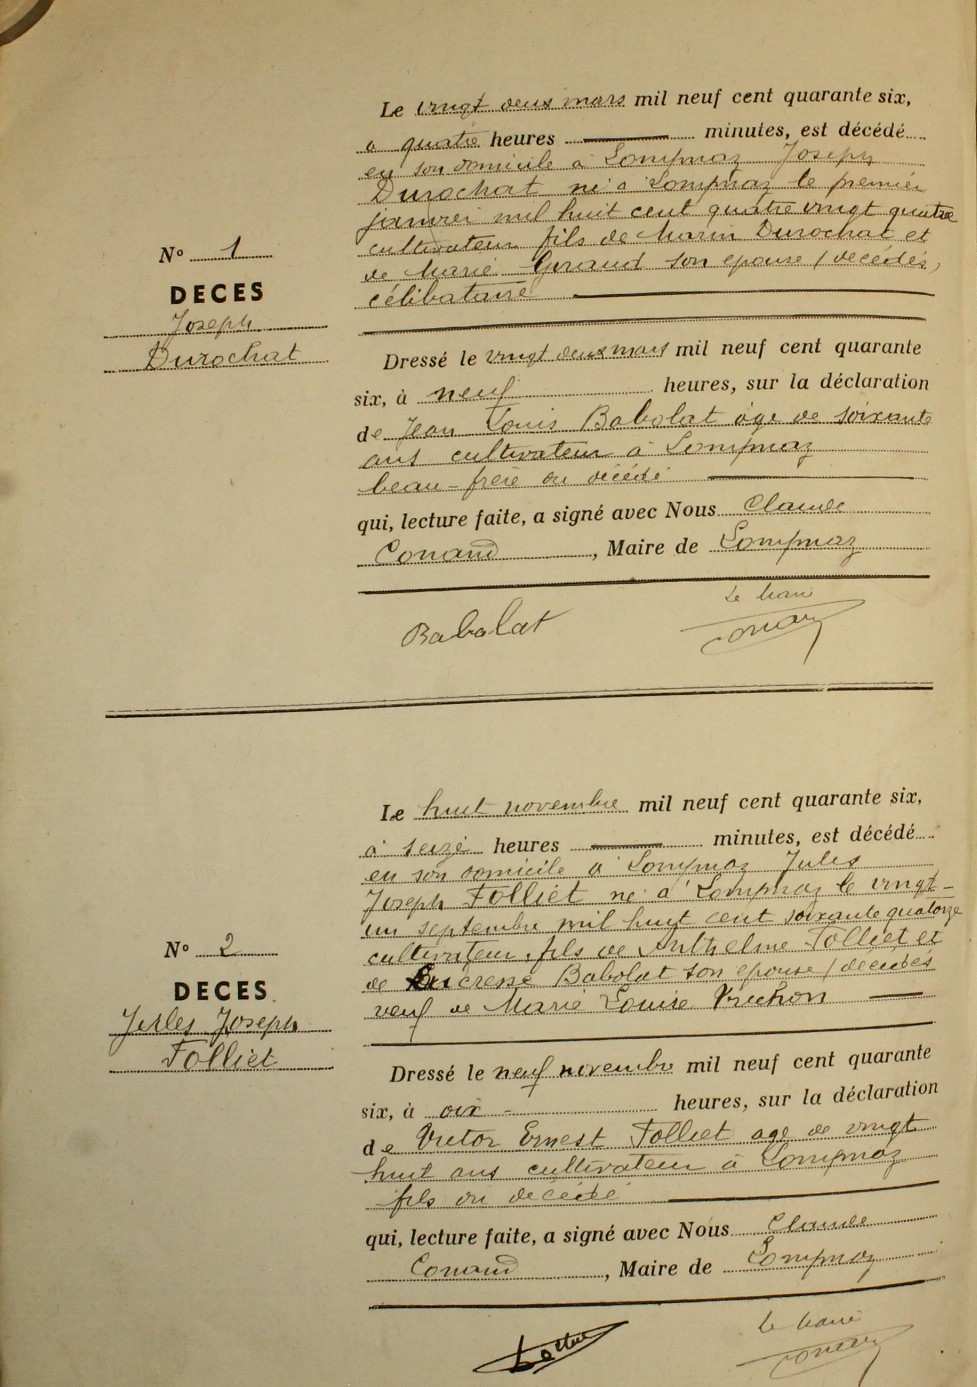 Le vingt deux mars mil neuf cent quarante six,
à quatre heures minutes, est décédé
en son domicile à Lompnaz Joseph
Durochat né à Lompnaz le premier
janvier mil huit cent quatre vingt quatre
cultivateur fils de Marin Durochat et
de Marie Giraud son épouse, décédés,
célibataire
N° 1
DECES
Joseph
Durochat
Dressé le vingt deux mars mil neuf cent quarante
six, à neuf heures, sur la déclaration
de Jean Louis Babolat âgé de soixante
ans cultivateur à Lompnaz
beau-frère du décédé
qui, lecture faite, a signé avec Nous Claude
Conand, Maire de Lompnaz
Babolat
Le Maire
Conand
Le huit novembre mil neuf cent quarante six,
à seize heures minutes, est décédé
en son domicile à Lompnaz Jules
Joseph Folliet né à Lompnaz le vingt-
un septembre mil huit cent soixante quatorze
cultivateur, fils de Anthelme Folliet et
de Lucresse Babolat son épouse, décédés
veuf de Marie Louise Truchon
N° 2
DECES
Jules Joseph
Folliet
Dressé le neuf novembre mil neuf cent quarante
six, à dix heures, sur la déclaration
de Victor Ernest Folliet âgé de vingt
huit ans cultivateur à Lompnaz
fils du décédé
qui, lecture faite, a signé avec Nous Claude
Conand, Maire de Lompnaz
Le Maire
Conand